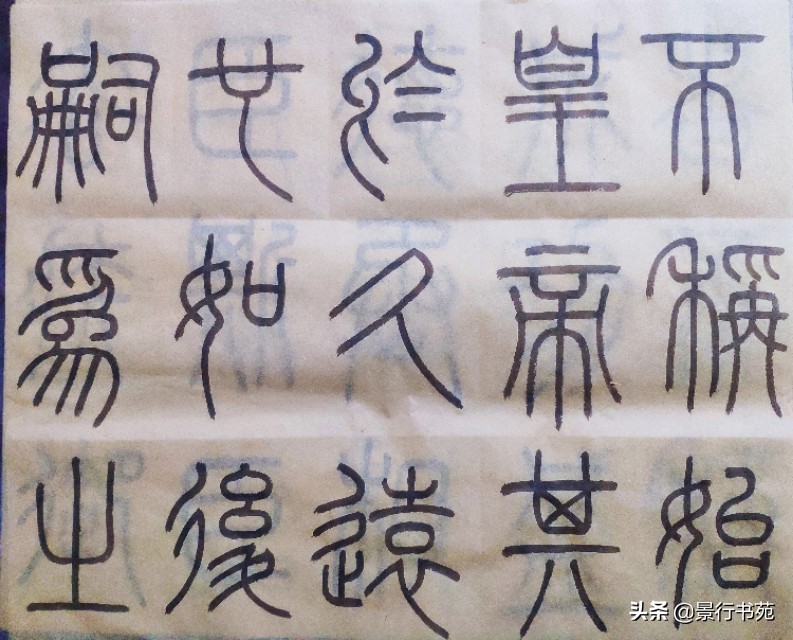 不稱始
皇帝其
於久遠
也如後
嗣爲之
头条 @景行书苑